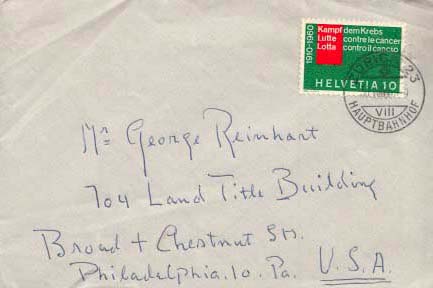 1910-1960
Kampf dem Krebs
Lutte contre le cancer
Lotta contro il cancro
HELVETIA 10
23
VIII
HAUPTBAHNHOF
Mr George Reinhart
704 Land Title Building
Broad + Chestnut Sts.
Philadelphia.10. Pa. U.S.A.